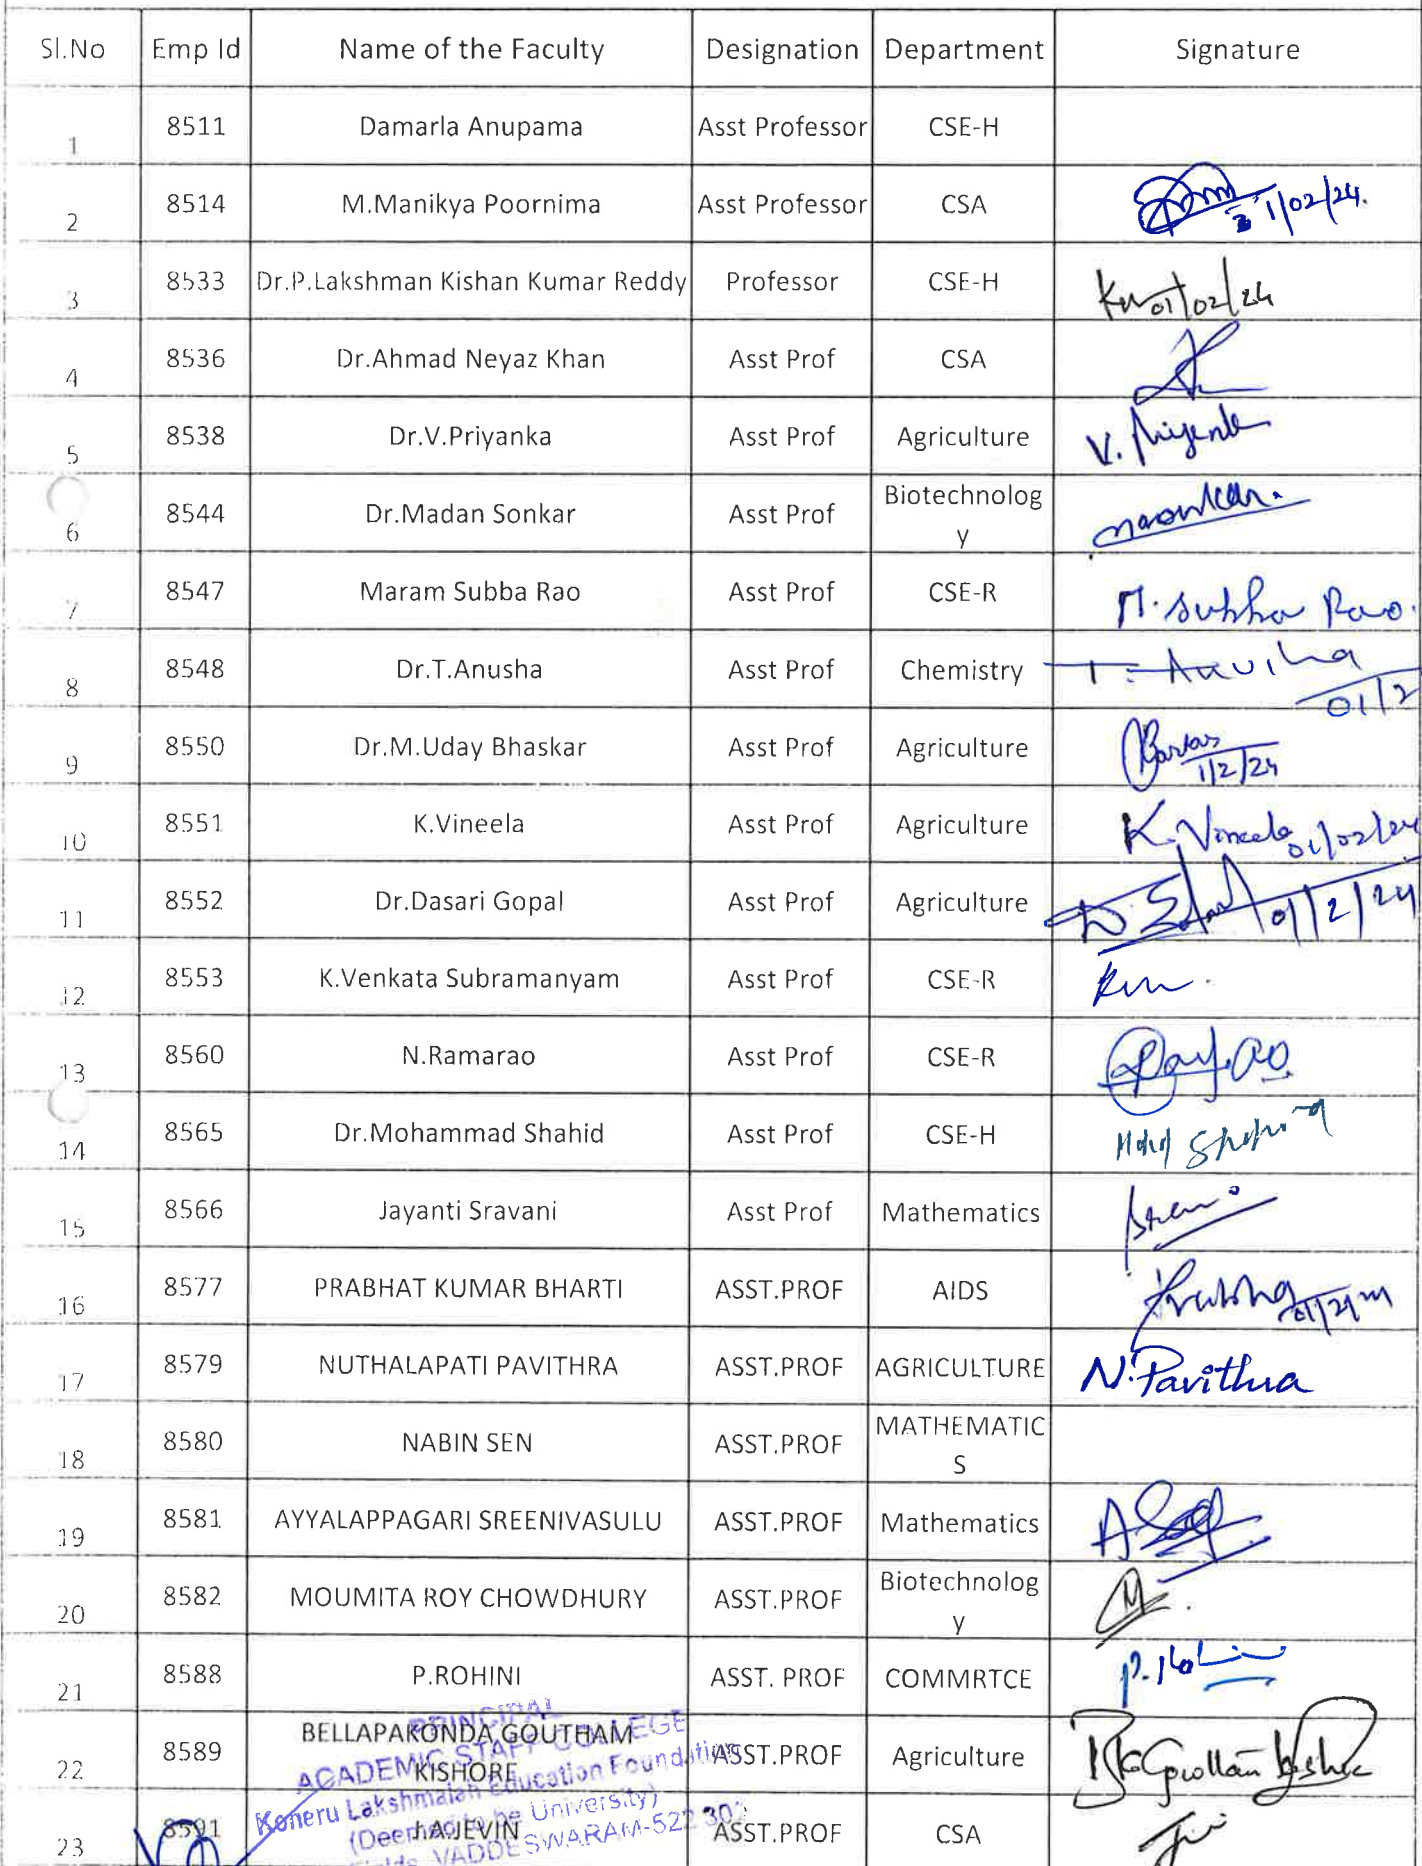 Sl.No Emp Id Name of the Faculty Designation Department Signature
1 8511 Damarla Anupama Asst Professor CSE-H
2 8514 M.Manikya Poornima Asst Professor CSA 1/02/24.
3 8533 Dr.P.Lakshman Kishan Kumar Reddy Professor CSE-H 01/02/24
4 8536 Dr.Ahmad Neyaz Khan Asst Prof CSA
5 8538 Dr.V.Priyanka Asst Prof Agriculture V. Priyanka
6 8544 Dr.Madan Sonkar Asst Prof Biotechnolog
y
7 8547 Maram Subba Rao Asst Prof CSE-R M. Subba Rao.
8 8548 Dr.T.Anusha Asst Prof Chemistry T. Anusha
01/2
9 8550 Dr.M.Uday Bhaskar Asst Prof Agriculture
1/2/24
10 8551 K.Vineela Asst Prof Agriculture K. Vineela 01/02/24
11 8552 Dr.Dasari Gopal Asst Prof Agriculture 01/2/24
12 8553 K.Venkata Subramanyam Asst Prof CSE-R
13 8560 N.Ramarao Asst Prof CSE-R
14 8565 Dr.Mohammad Shahid Asst Prof CSE-H Mohd Shahid
15 8566 Jayanti Sravani Asst Prof Mathematics
16 8577 PRABHAT KUMAR BHARTI ASST.PROF AIDS
17 8579 NUTHALAPATI PAVITHRA ASST.PROF AGRICULTURE N.Pavithra
18 8580 NABIN SEN ASST.PROF MATHEMATIC
S
19 8581 AYYALAPPAGARI SREENIVASULU ASST.PROF Mathematics
20 8582 MOUMITA ROY CHOWDHURY ASST.PROF Biotechnolog
y
21 8588 P.ROHINI ASST. PROF COMMRTCE
22 8589 BELLAPAKONDA GOUTHAM
KISHORE ASST.PROF Agriculture
23 8591 J.A.JEVIN ASST.PROF CSA
PRINCIPAL
ACADEMIC STAFF COLLEGE
Koneru Lakshmaiah Education Foundation
(Deemed to be University)
VADDESWARAM-522 302